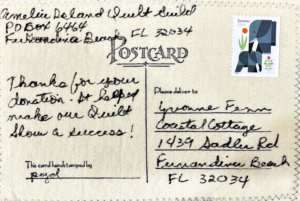 Amelia Island Quilt Guild
PO Box 6464
Fernandina Beach, FL 32034
POSTCARD
Thanks for your
donation. It helped
make our Quilt
Show a success!
This card handstamped by
Please deliver to
Yvonne Fenn
Coastal Cottage
1439 Sadler Rd
Fernandina Beach
FL 32034